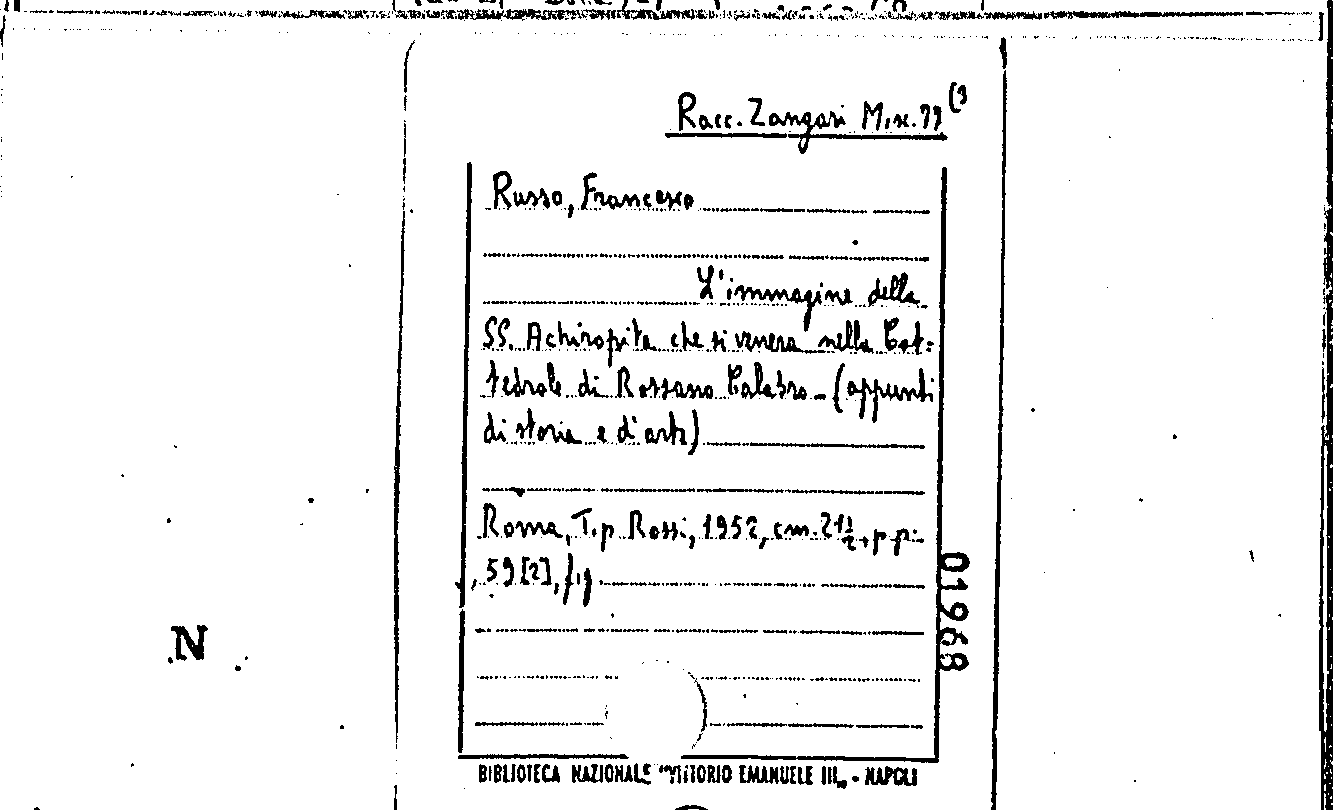 Racc. Zangari Misc. 99 (9
Russo, Francesco
L'immagine della
SS. Achiropita che si venera nella Cat=
tedrale di Rossano Calabro - (appunti
di storia e d'arte)
Roma, Tip. Rossi, 1952, cm. 21½, pp.
59 [2], fig.
01968
N
BIBLIOTECA NAZIONALE "VITTORIO EMANUELE III„ - NAPOLI